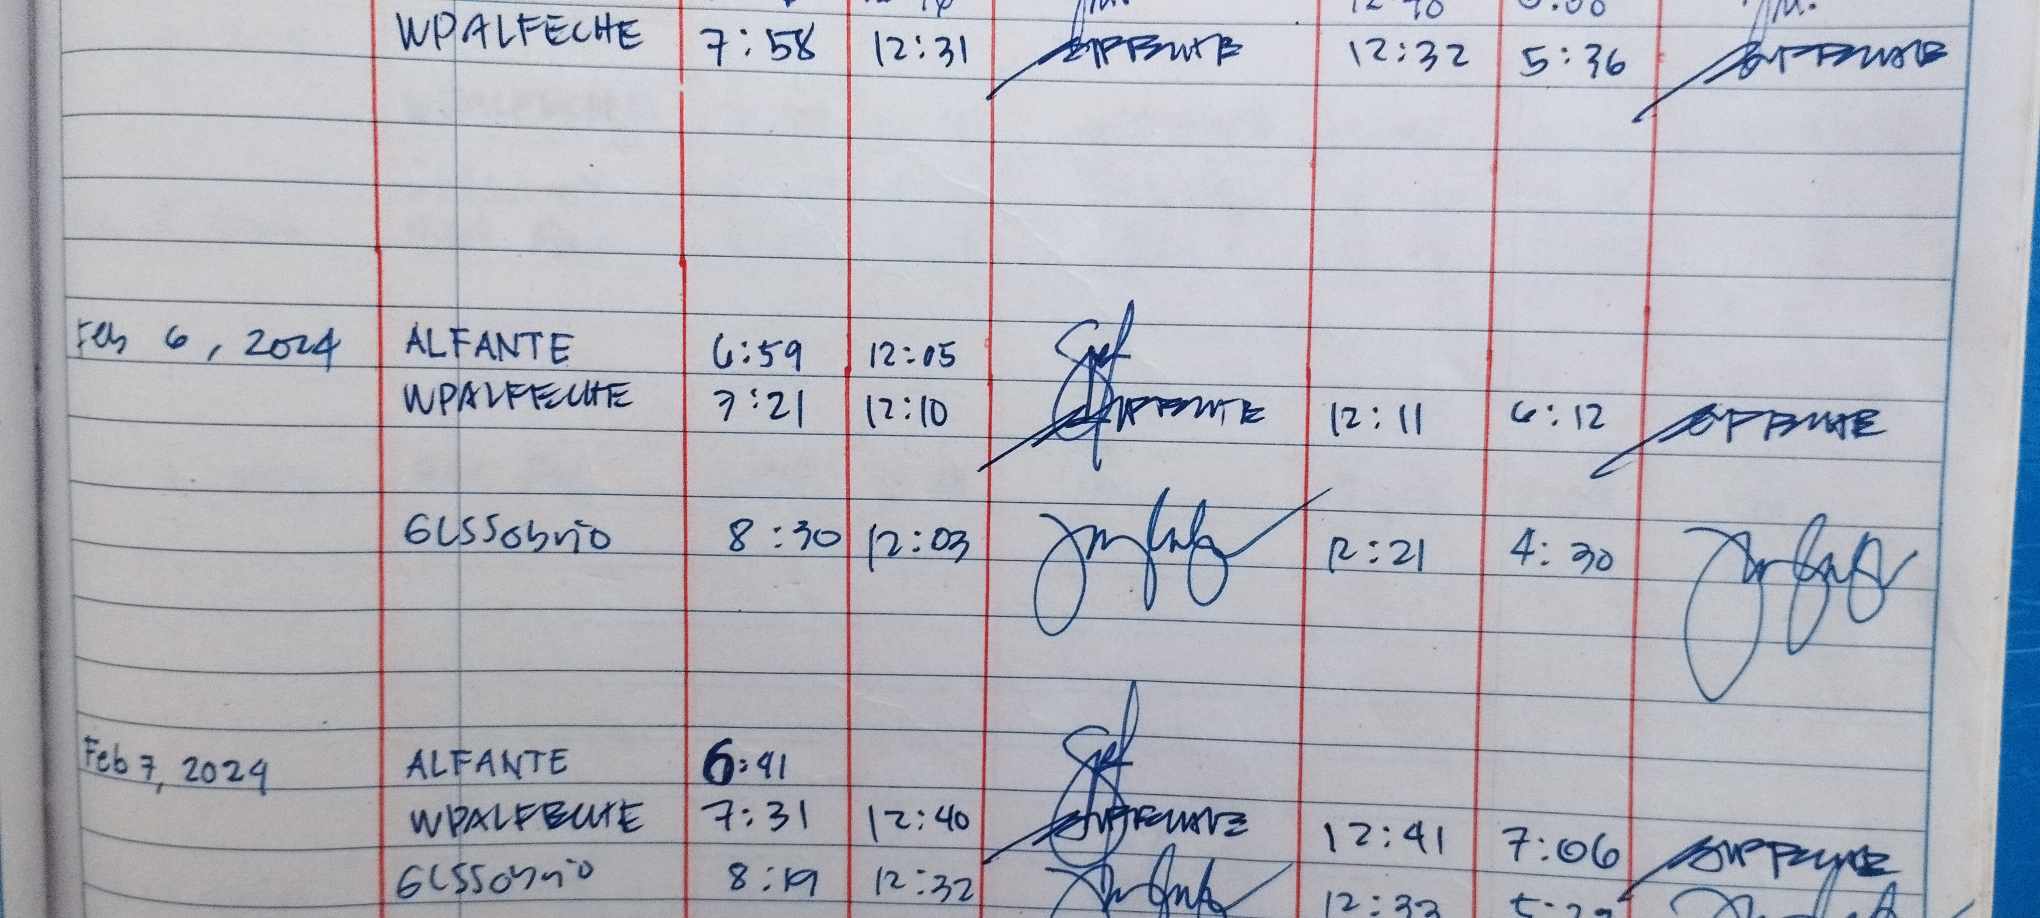 WPALFECHE 7:58 12:31 12:32 5:36
Feb 6, 2024 ALFANTE 6:59 12:05
WPALFECHE 7:21 12:10 12:11 6:12
GLSSobrio 8:30 12:03 12:21 4:30
Feb 7, 2024 ALFANTE 6:41
WPALFECHE 7:31 12:40 12:41 7:06
GLSSobrio 8:19 12:32 12:33